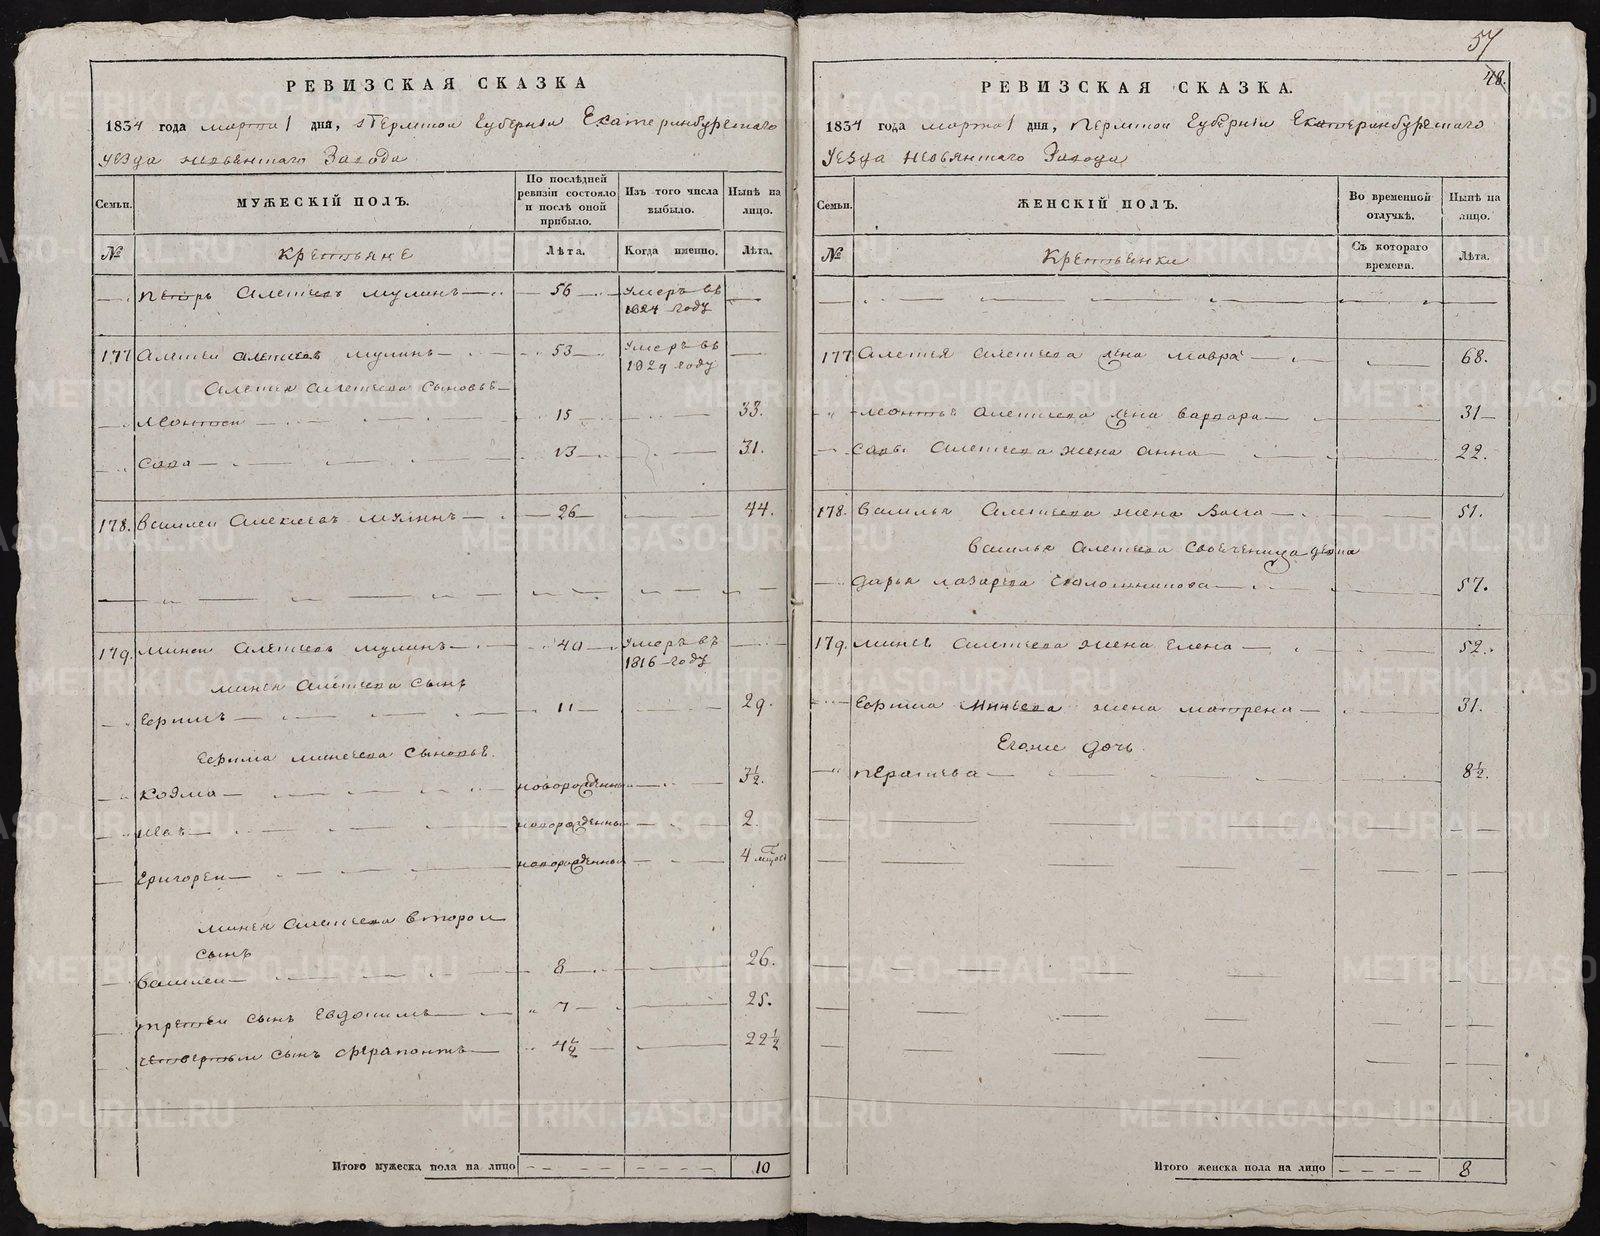 57
РЕВИЗСКАЯ СКАЗКА
1834 года марта 1 дня, Пермской Губернiи Екатеринбургскаго
уезда невьянскаго Завода
Семьи.
МУЖЕСКІЙ ПОЛЪ.
По послѣдней ревизіи состояло и послѣ оной прибыло.
Изъ того числа выбыло.
Нынѣ на лицо.
№
Крестьяне
Лѣта.
Когда именно.
Лѣта.
Петръ Алексеевъ мулинъ 56 Умеръ въ 1824 году
177 Алексеи алексеевъ мулинъ 53 Умеръ въ 1829 году
Алексея алексеева сыновье
леонтеи 15 33.
сава 13 31.
178. василеи Алексеевъ мулинъ 26 44.
179. минеи алексеевъ мулинъ 40 Умеръ въ 1816 году
минея алексеева сынъ
Ефимъ 11 29.
Ефима минеева сыновье.
козма новорожденны 3½.
новорожденныи 2.
Григореи новорожденныи 4
минея алексеева второи
сынъ
василеи 8 26.
третеи сынъ Евдокимъ 7 25.
четвертыи сынъ ферапонтъ 4½ 22½
Итого мужеска пола на лицо 10
48.
РЕВИЗСКАЯ СКАЗКА.
1834 года марта 1 дня, пермской губернiи Екатеринбургскаго
уезда невьянскаго Завода
Семьи.
ЖЕНСКІЙ ПОЛЪ.
Во временной отлучкѣ.
Нынѣ на лицо.
№
Крестьянки
Съ котораго времена.
Лѣта.
177 алексея алексеева жена мавра 68.
леонтья алексеева жена варвара 31
савы алексеева жена анна 22.
178. василья алексеева жена 51.
василья алексеева своеченица
дарья лазарева 57.
179. минея алексеева жена елена 52.
Ефима минеева жена матрена 31.
Егоже дочь
8½.
Итого женска пола на лицо 8
METRIKI.GASO-URAL.RU